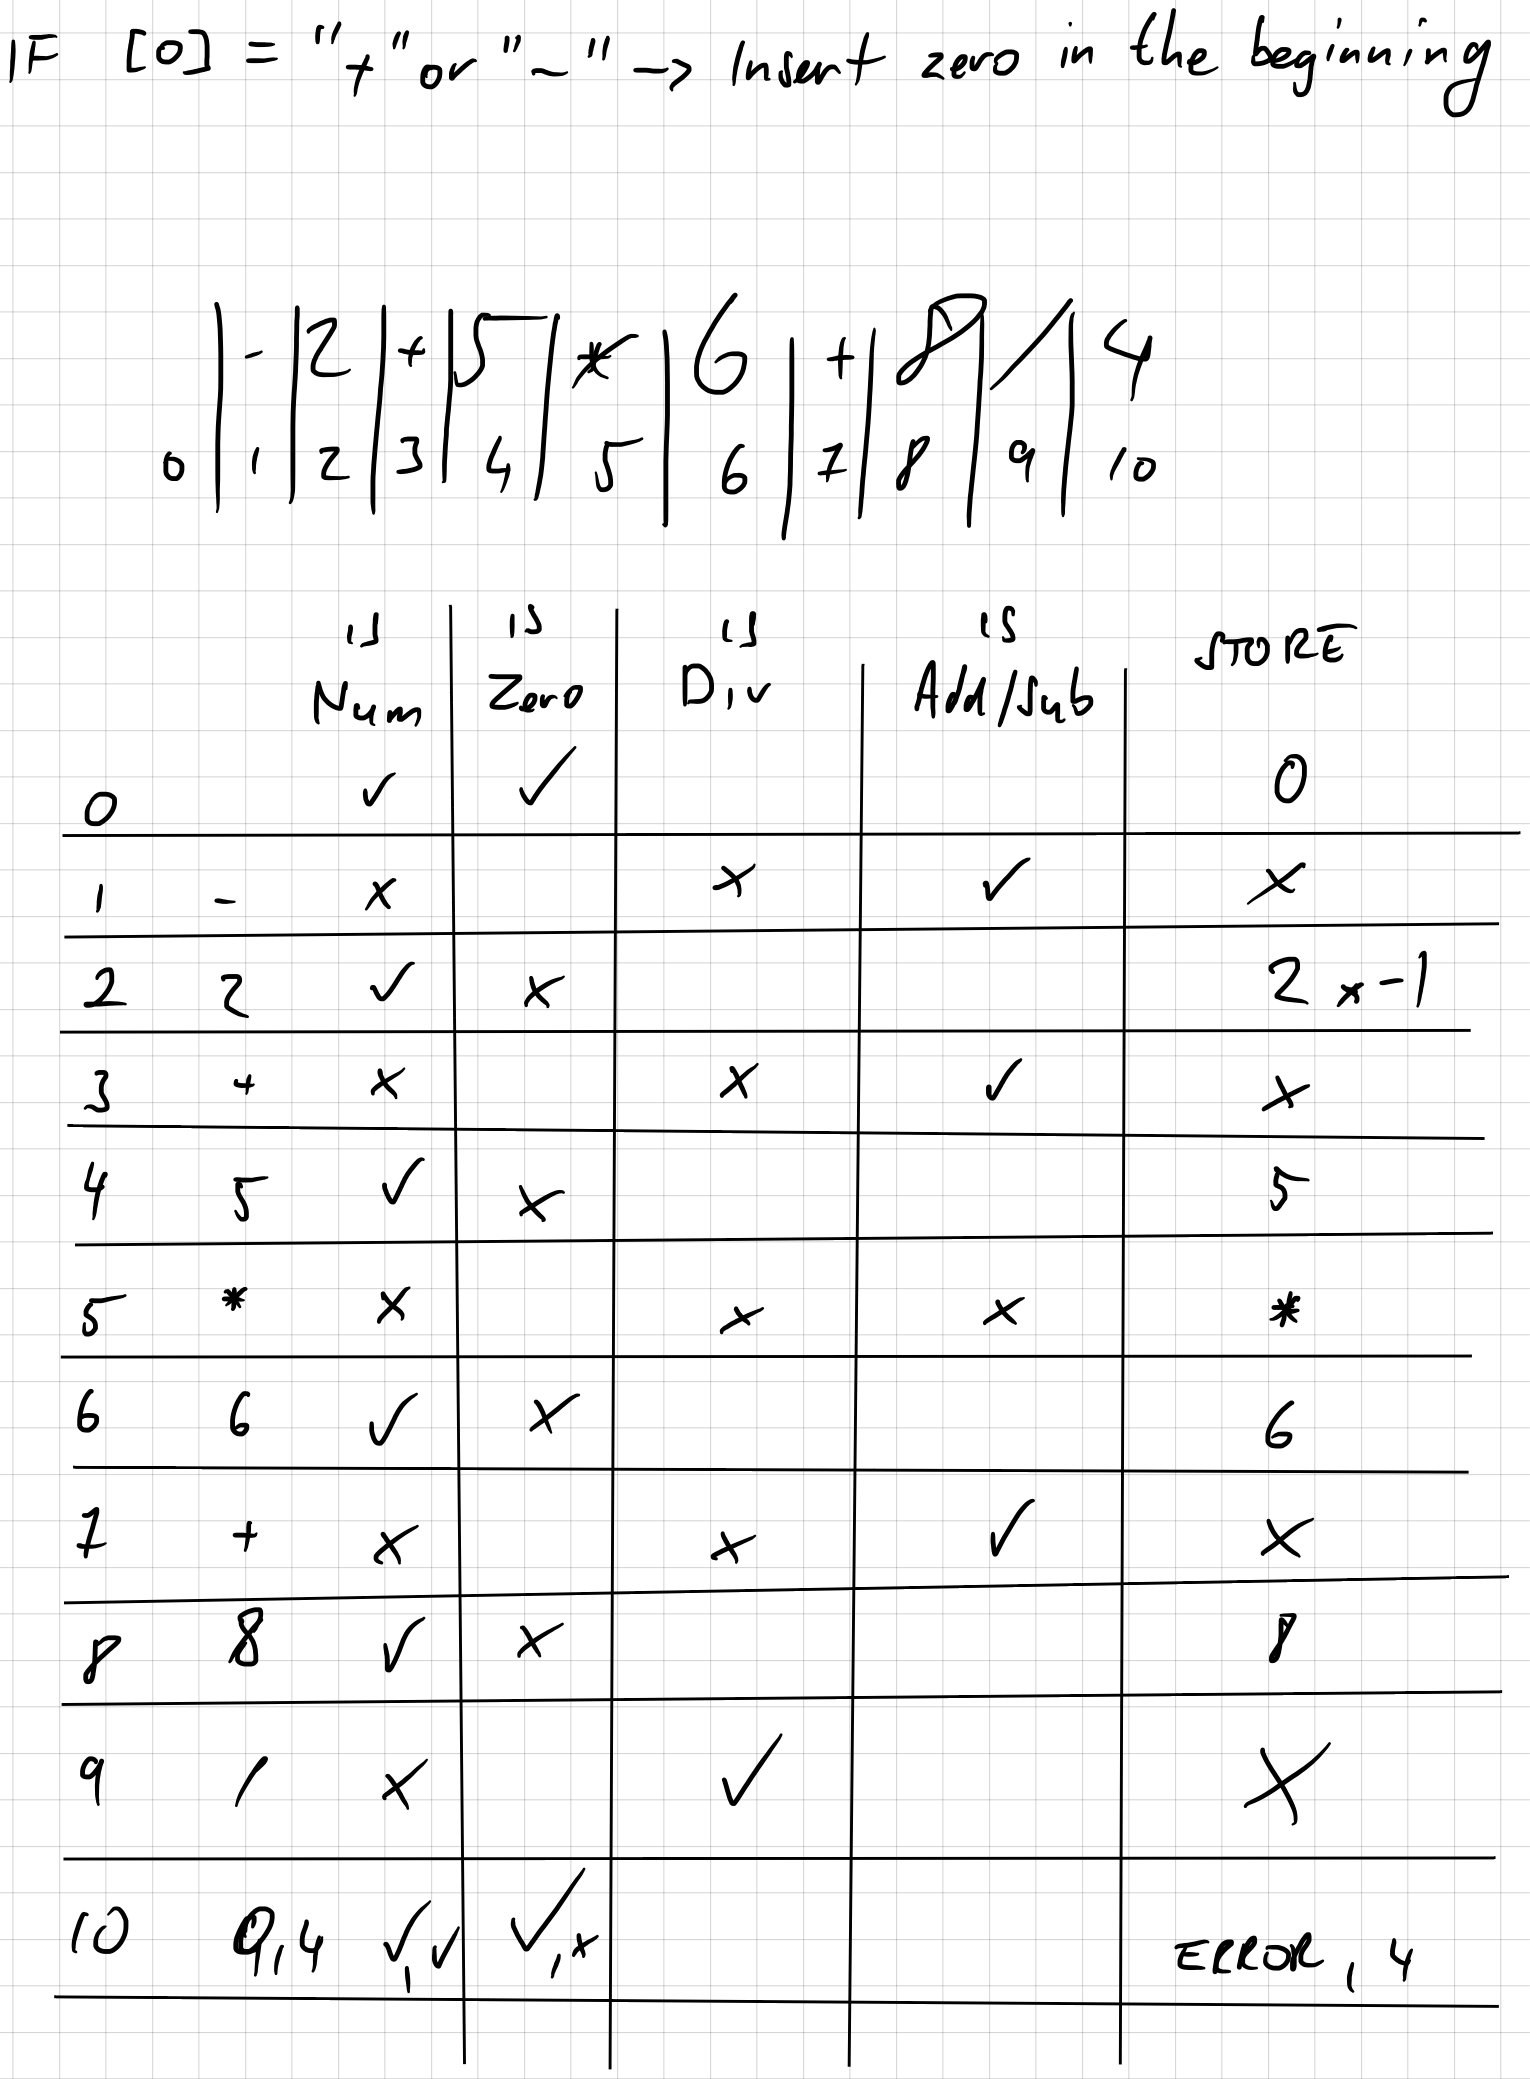 IF [0] = "+" or "-" -> Insert zero in the beginning
| - | 2 | + | 5 | * | 6 | + | 8 | / | 4
0 | 1 | 2 | 3 | 4 | 5 | 6 | 7 | 8 | 9 | 10
is Num | is Zero | is Div | is Add/Sub | STORE
0 ✓ | ✓ | | | 0
1 - x | | x | ✓ | x
2 2 ✓ | x | | | 2 * -1
3 + x | | x | ✓ | x
4 5 ✓ | x | | | 5
5 * x | | x | x | *
6 6 ✓ | x | | | 6
7 + x | | x | ✓ | x
8 8 ✓ | x | | | 8
9 / x | | ✓ | | x
10 0,4 ✓,✓ | ✓,x | | | ERROR, 4